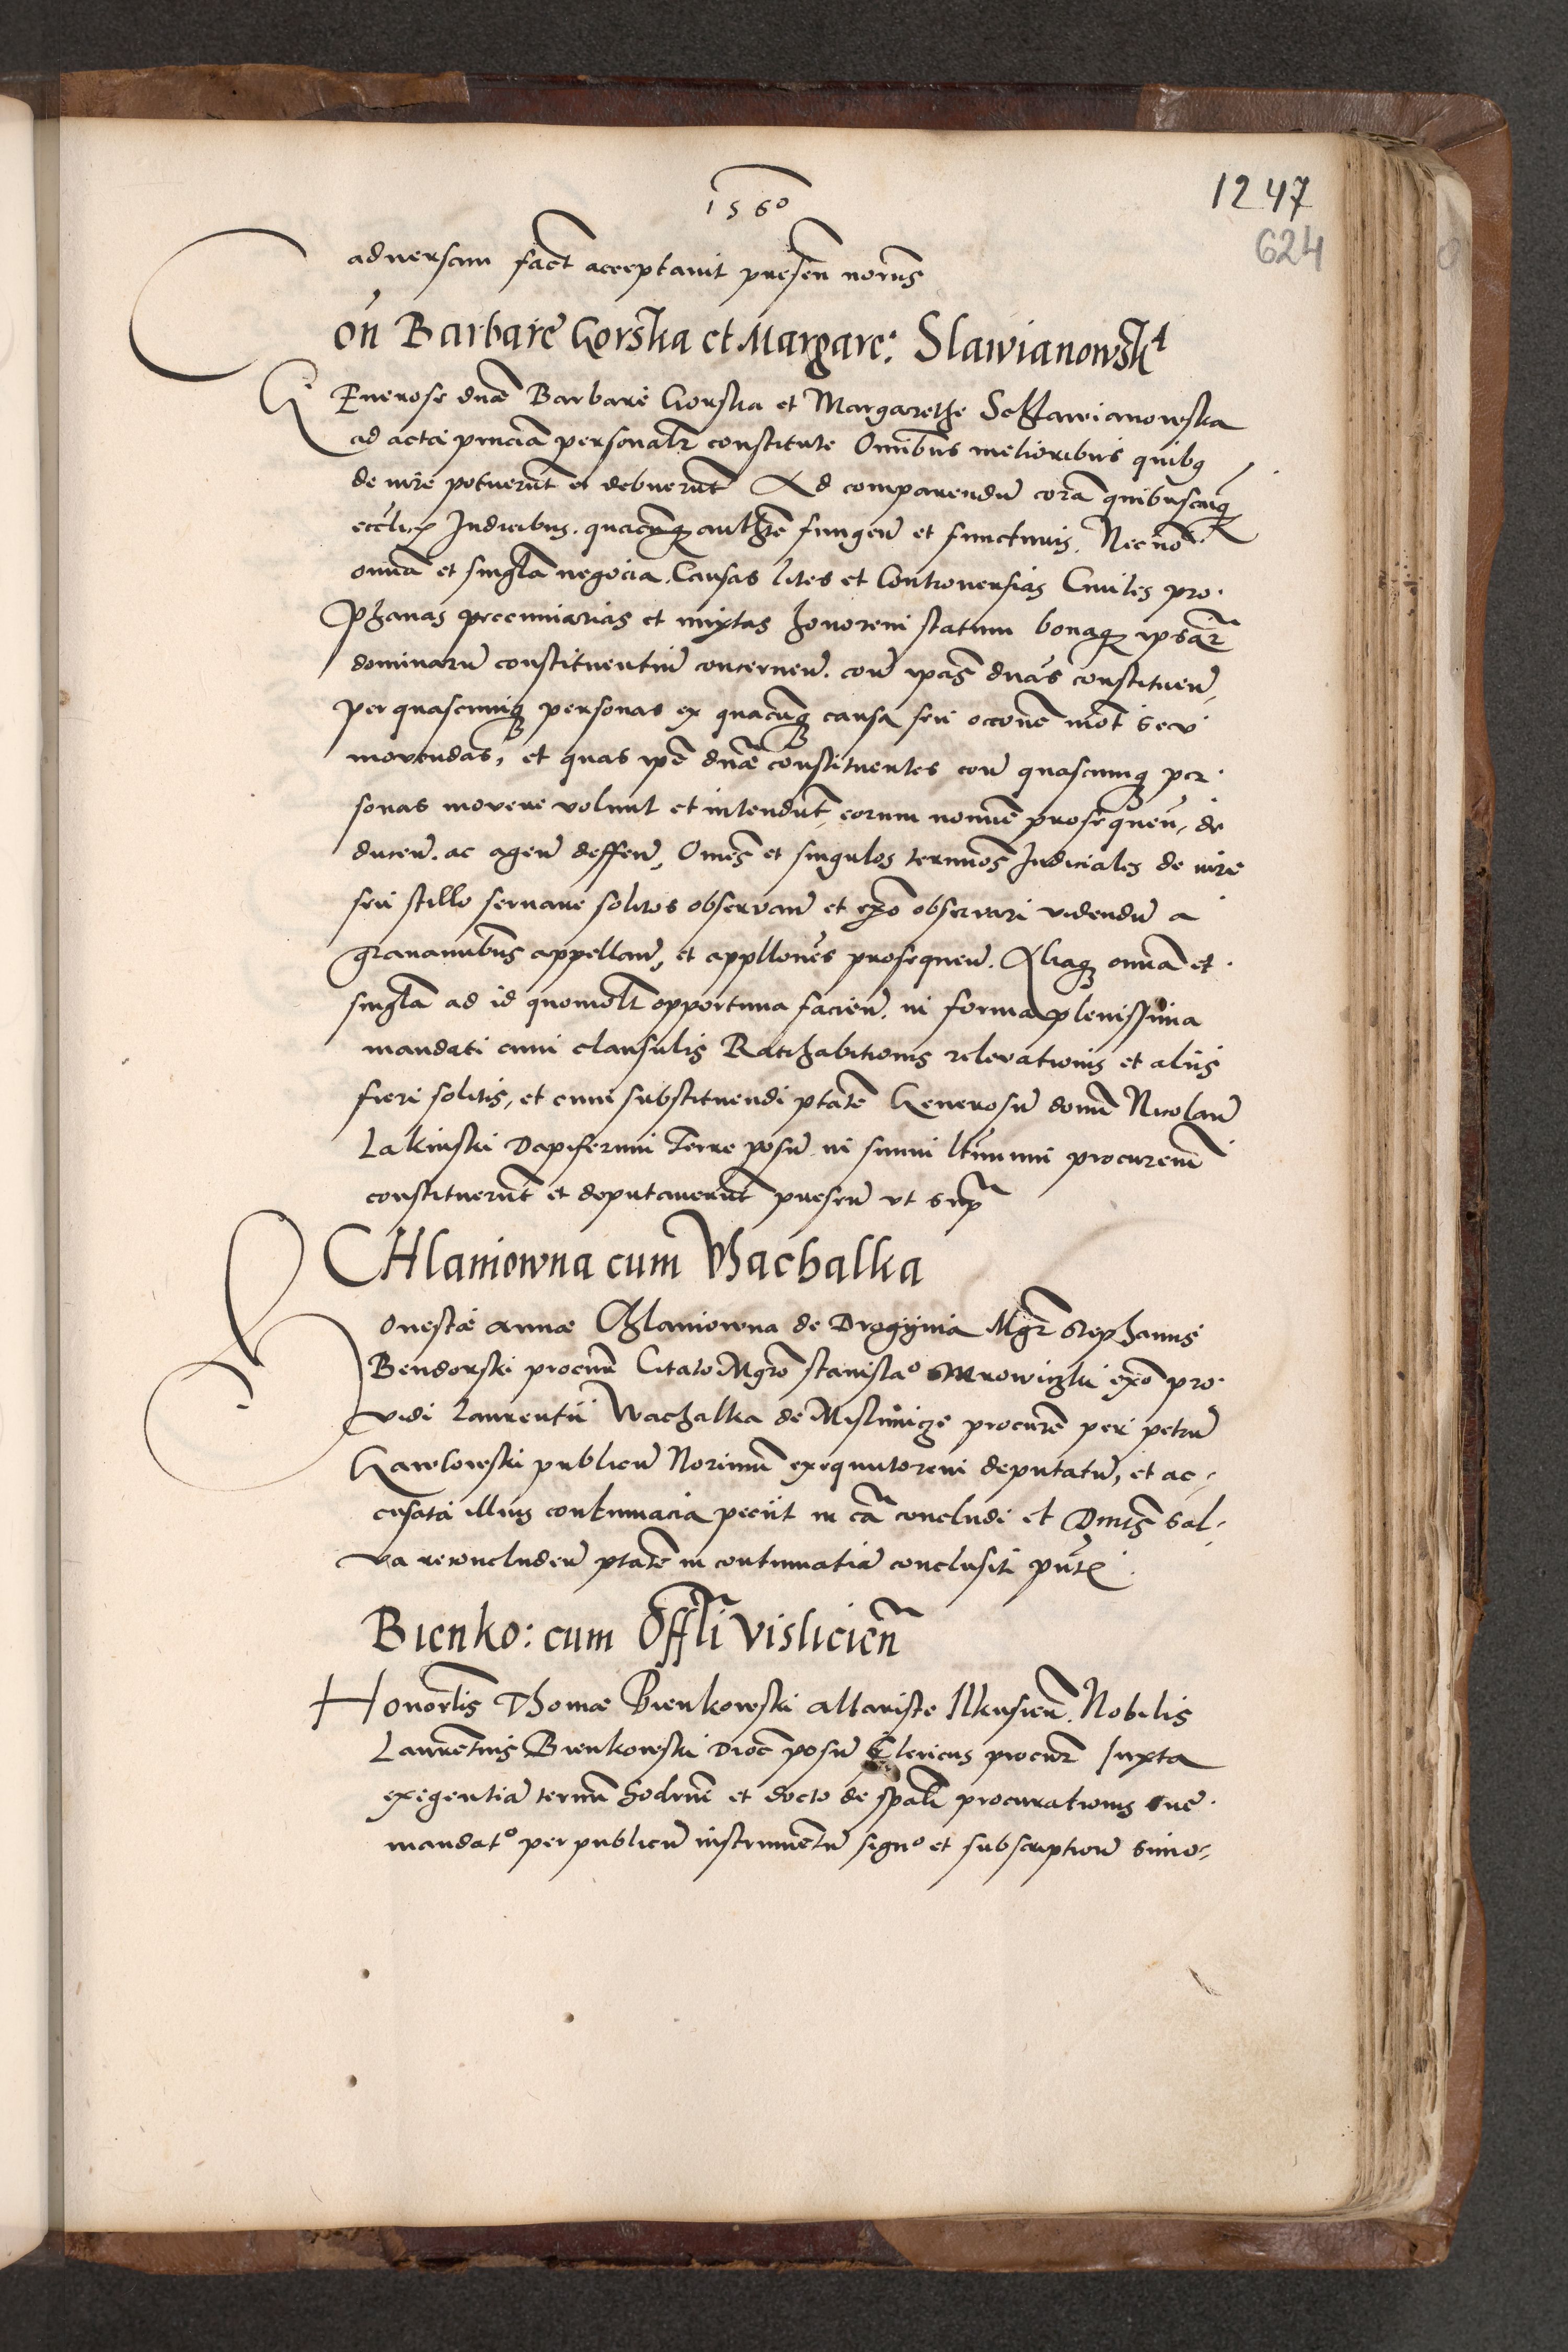 1560
1247
624
adversam fact acceptavit presen̄ noriis
Con̄ Barbare Gorska et Margare: Slawianowsk
Generose dn̄e Barbare Gorska et Margarethe Schlawianowska
ad acta pn̄cia personalr constitute Omnibus melioribus quibq
de iure potuerūt et debuerūt Ad comparendū corā quibuscūq
Judicibus quacūq authte fungen̄ et functuris. Nec nō
omnia et singla negocia. Causas lites et Controversias Civiles pro-
phanas peccuniarias et mixtas honorem statum bonaq ipsar
dominarū constituentiū concernen̄. con̄ ipas dn̄as constituen̄
per quascunq personas ex quacūq causa seu occone mot seu
movendas, et quas ipe dn̄e constituentes con̄ quascunq per-
sonas movere volunt et intendūt, eorum nomine prosequen̄, de
ducen̄. ac agen̄ deffen̄, Omes et singulos terminos Judiciales de iure
seu stillo servare solitos observan̄ et exo observari videndū a
gravaminibus appellan̄, et appllones prosequen̄. Aliaq omnia et
singla ad id quomolt opportuna facien̄. in forma plenissima
mandati cum clausulis Ratihabitionis relevationis et aliis
fieri solitis, et cum substituendi ptate Generosū domi Nicolaū
Lakinski Dapiferum Terre posn̄ in suum ltimum procurem
constituerūt et deputaverūt presen̄ ut supra
CHlaniowna cum Wachalka
Honestae annae Chlaniowna de Droginia Mgr Stephanus
Bendorski procur Citato Mgro stanislao Mrowinski exo pro-
vidi Laurentii Wachalka de Mislimicze procure per petrū
Gawlowski publicū Norium exequutorem deputatū, et ac-
cusata illius contumacia peciit in cā concludi et Dn̄us sal-
va reconcluden̄ ptate in contumatia conclusit pn̄te
Bienko: cum Offli Vislicien̄
Honorlis Thomae Bienkowski altariste Ilkusien̄. Nobilis
Laurentius Bienkowski Dioc posn̄ Clericus procur Juxta
exigentia termi hodrni et docto de spāli procurationis sue
mandato per publicū instrumentū signo et subscription̄ simo-